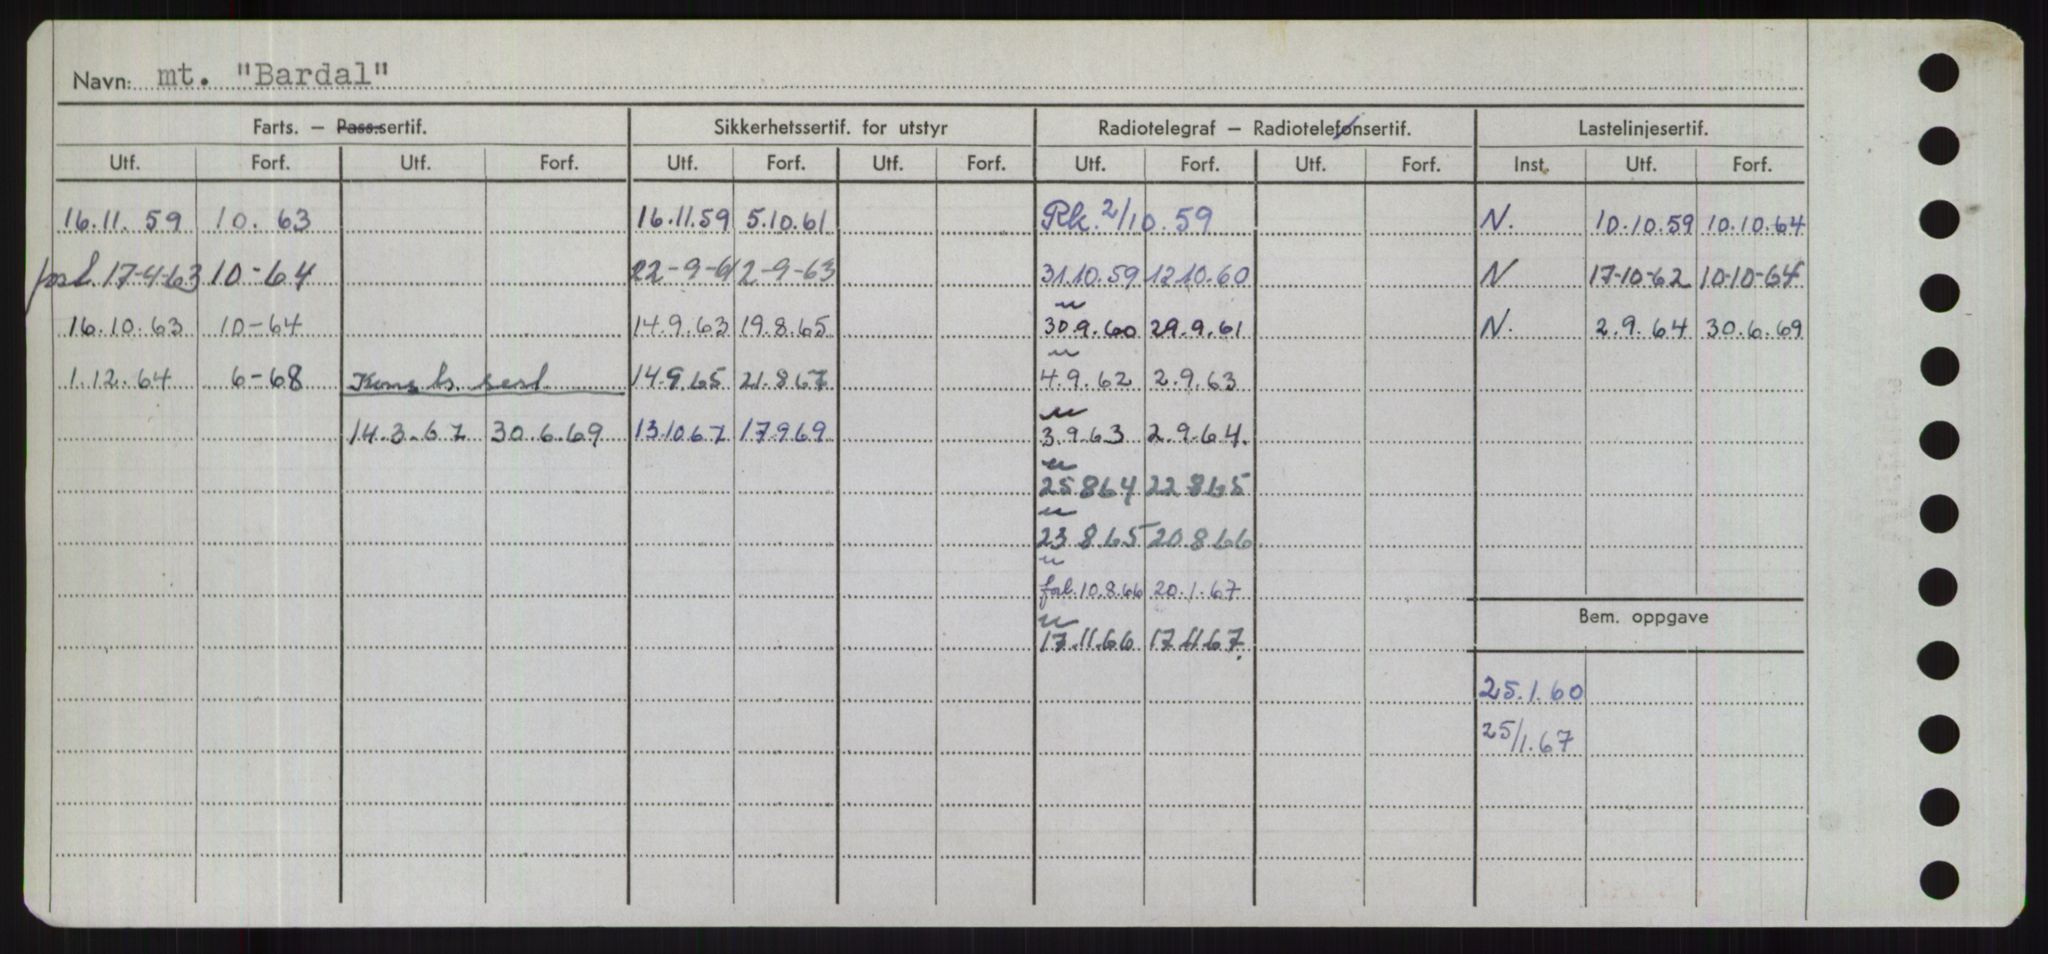 Navn: mt. "Bardal"
Farts. – Pass.sertif. Sikkerhetssertif. for utstyr Radiotelegraf – Radiotelefonsertif. Lastelinjesertif.
Utf. Forf. Utf. Forf. Utf. Forf. Utf. Forf. Utf. Forf. Utf. Forf. Inst. Utf. Forf.
16.11.59 10.63 16.11.59 5.10.61 Rk. 2/10.59 N. 10.10.59 10.10.64
17-4-63 10-64 22-9-61 2-9-63 31.10.59 12.10.60 N 17-10-62 10-10-64
16.10.63 10-64 14.9.63 19.8.65 30.9.60 29.9.61 N. 2.9.64 30.6.69
1.12.64 6-68 14.9.65 21.8.67 4.9.62 2.9.63
14.3.67 30.6.69 13.10.67 17.9.69 3.9.63 2.9.64.
25.8.64 22.8.65
23.8.65 20.8.66
10.8.66 20.1.67
Bem. oppgave
17.11.66 17.11.67
25.1.60
25/1.67